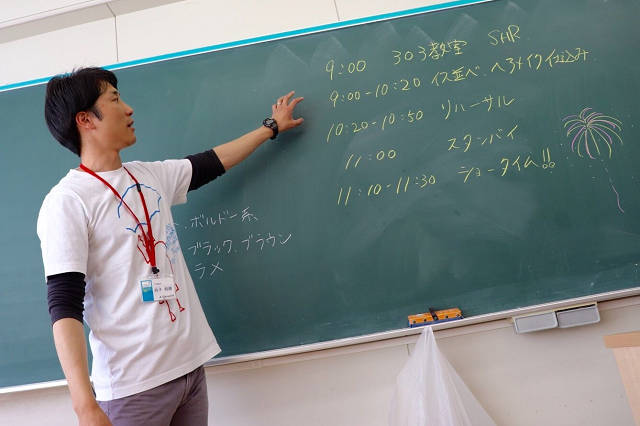 9:00 303教室 SHR
9:00-10:20 イス並べ、ヘアメイク仕込み
10:20-10:50 リハーサル
11:00 スタンバイ
11:10-11:30 ショータイム!!
ボルドー系、
ブラック、ブラウン
ラメ